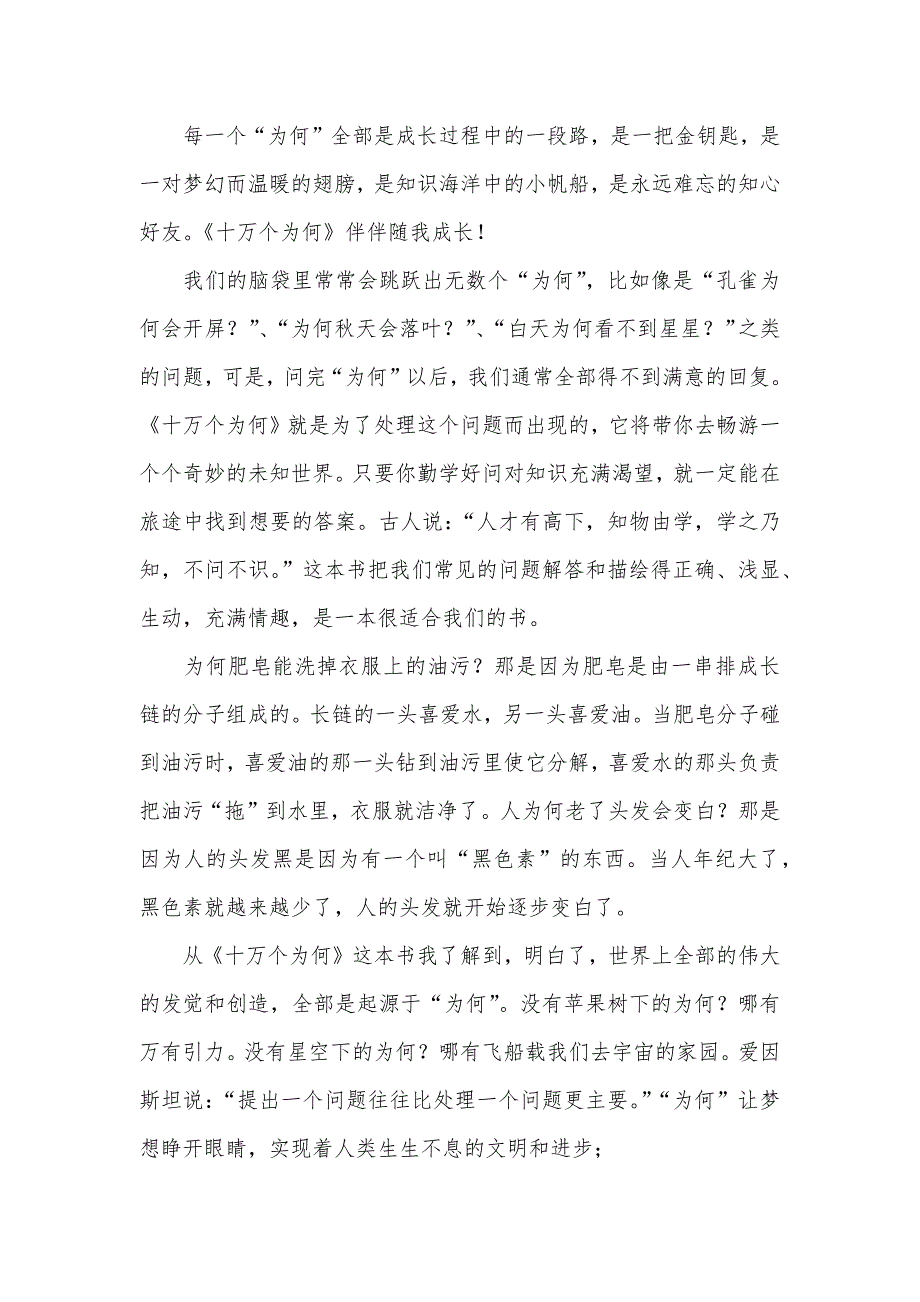 每一个“为何”全部是成长过程中的一段路，是一把金钥匙，是
一对梦幻而温暖的翅膀，是知识海洋中的小帆船，是永远难忘的知心
好友。《十万个为何》伴伴随我成长！
我们的脑袋里常常会跳跃出无数个“为何”，比如像是“孔雀为
何会开屏？”、“为何秋天会落叶？”、“白天为何看不到星星？”之类
的问题，可是，问完“为何”以后，我们通常全部得不到满意的回复。
《十万个为何》就是为了处理这个问题而出现的，它将带你去畅游一
个个奇妙的未知世界。只要你勤学好问对知识充满渴望，就一定能在
旅途中找到想要的答案。古人说：“人才有高下，知物由学，学之乃
知，不问不识。”这本书把我们常见的问题解答和描绘得正确、浅显、
生动，充满情趣，是一本很适合我们的书。
为何肥皂能洗掉衣服上的油污？那是因为肥皂是由一串排成长
链的分子组成的。长链的一头喜爱水，另一头喜爱油。当肥皂分子碰
到油污时，喜爱油的那一头钻到油污里使它分解，喜爱水的那头负责
把油污“拖”到水里，衣服就洁净了。人为何老了头发会变白？那是
因为人的头发黑是因为有一个叫“黑色素”的东西。当人年纪大了，
黑色素就越来越少了，人的头发就开始逐步变白了。
从《十万个为何》这本书我了解到，明白了，世界上全部的伟大
的发觉和创造，全部是起源于“为何”。没有苹果树下的为何？哪有
万有引力。没有星空下的为何？哪有飞船载我们去宇宙的家园。爱因
斯坦说：“提出一个问题往往比处理一个问题更主要。”“为何”让梦
想睁开眼睛，实现着人类生生不息的文明和进步；